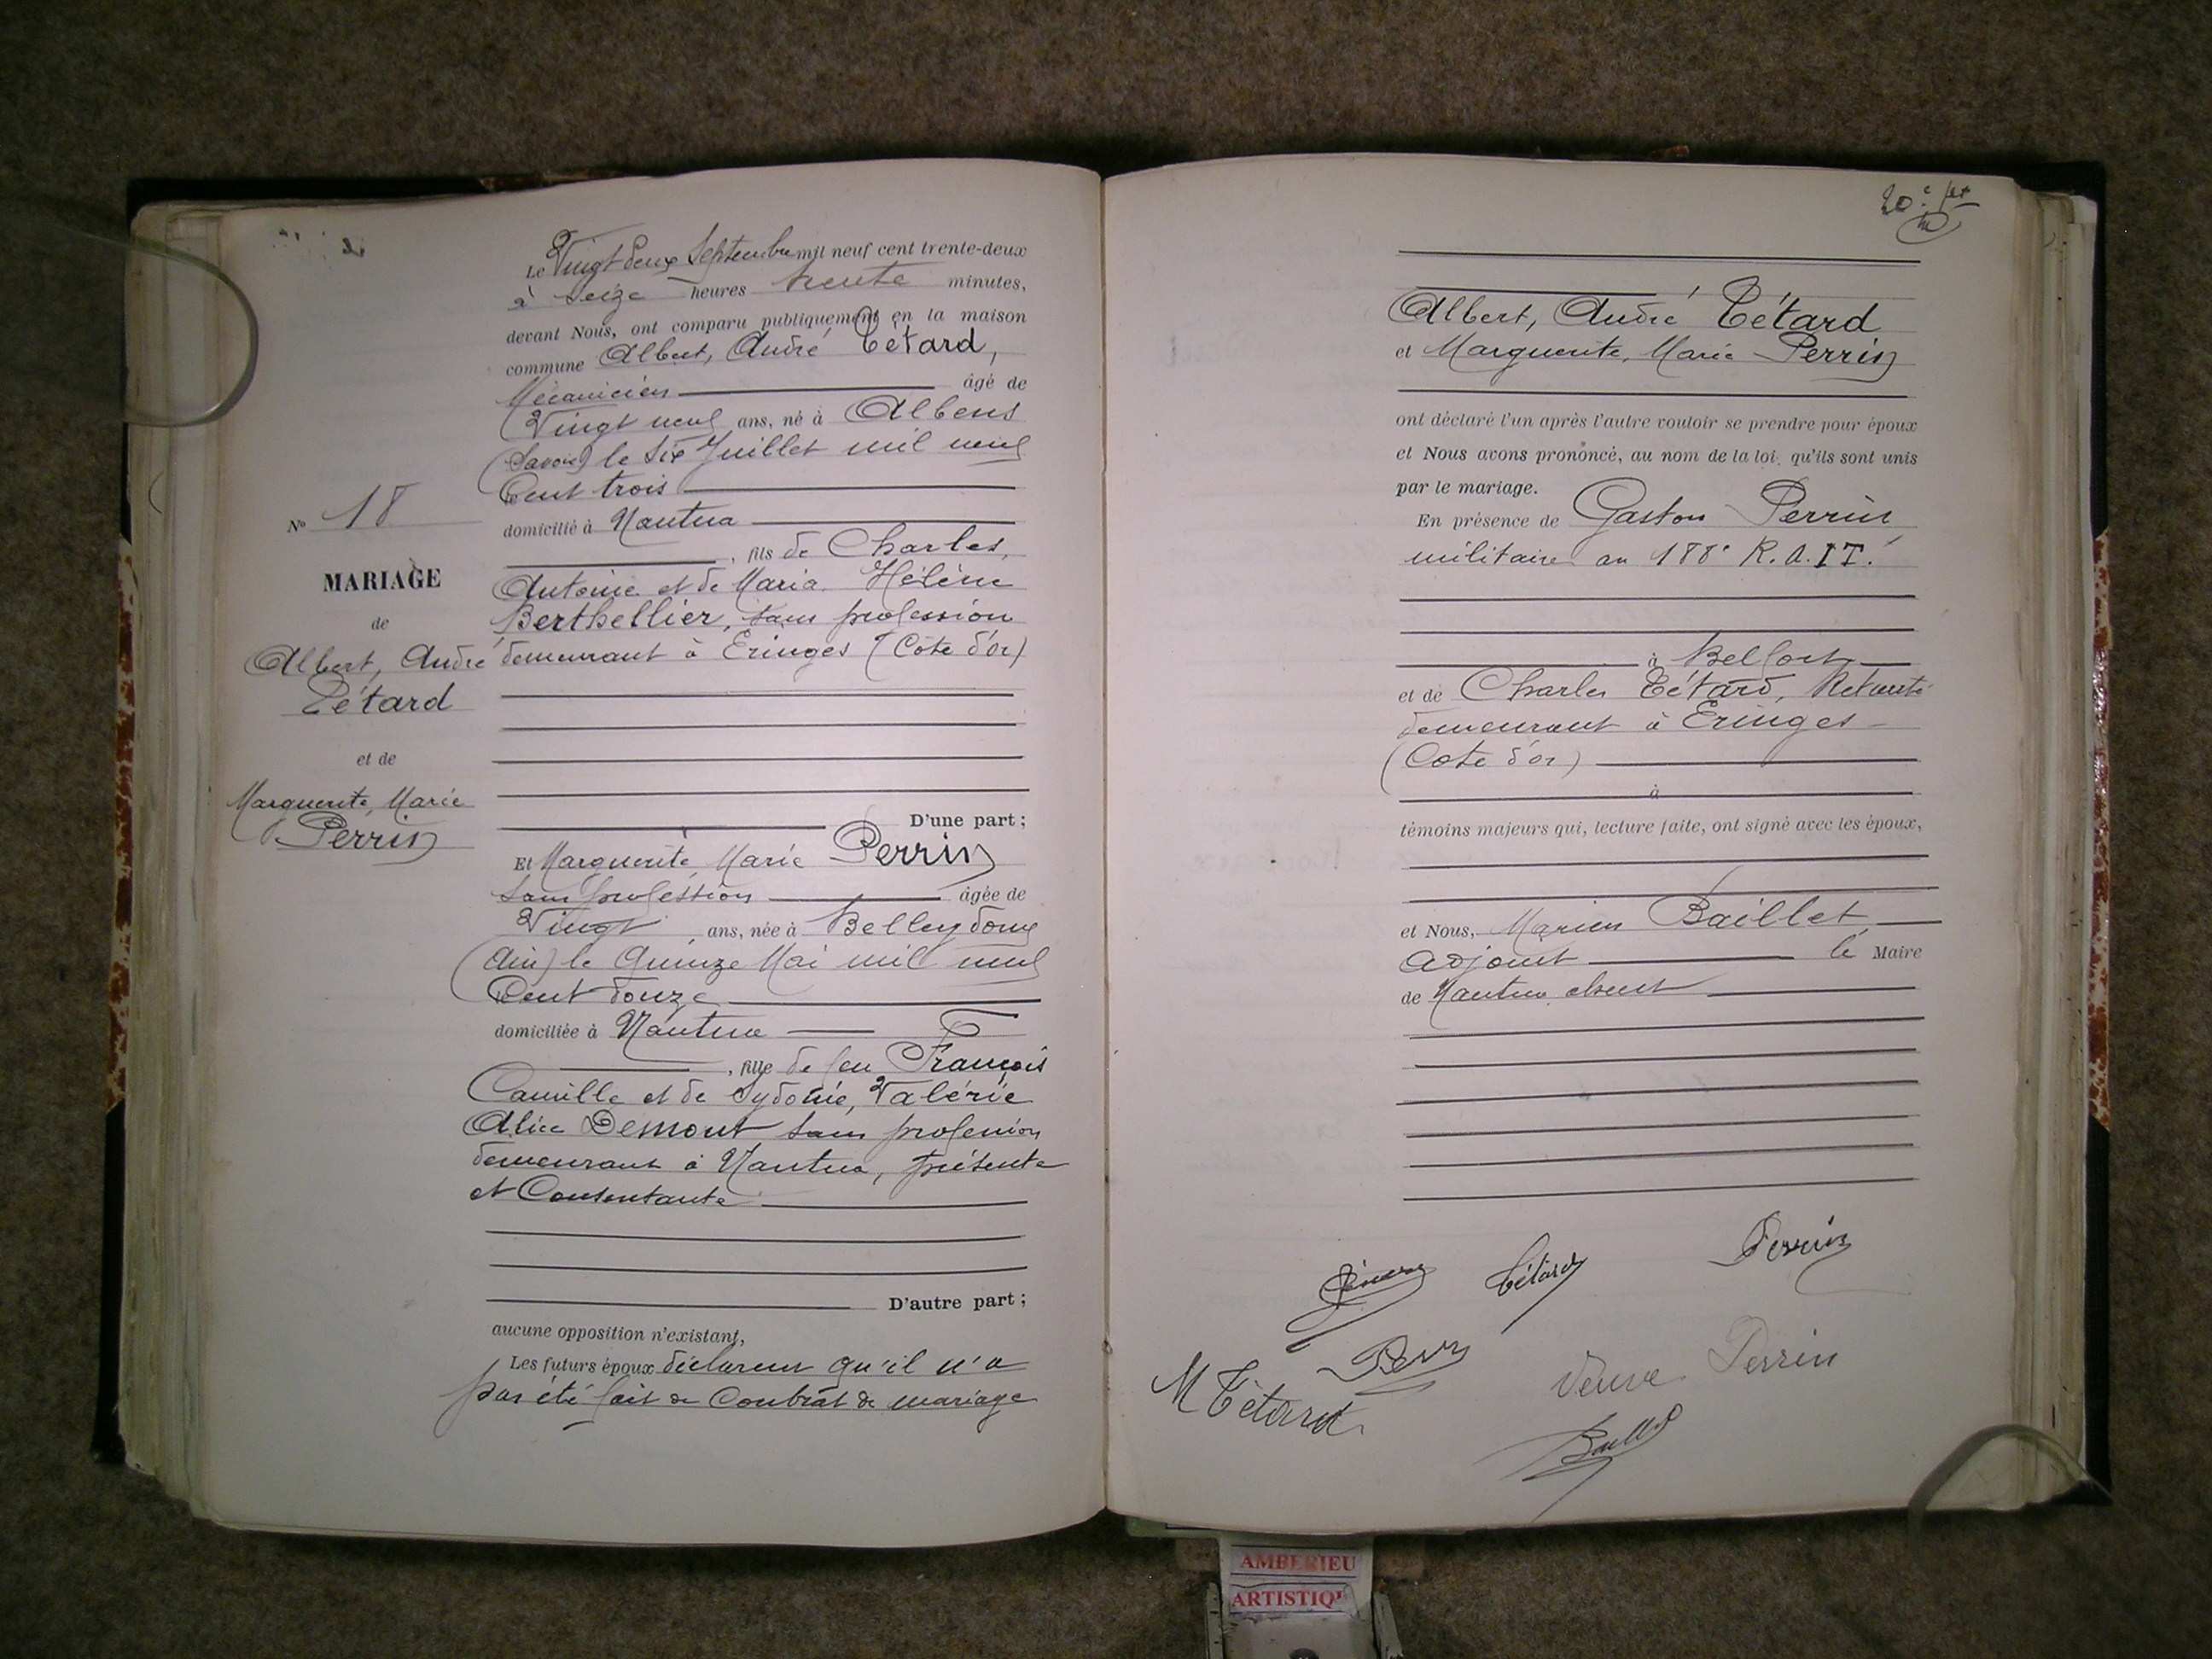 Le Vingt deux Septembre mil neuf cent trente-deux
à Seize heures trente minutes,
devant Nous, ont comparu publiquement en la maison
commune Albert, André Tétard,
Mécanicien âgé de
Vingt neuf ans, né à Albens
(Savoie) le Six Juillet mil neuf
Cent trois
domicilié à Nantua
, fils de Charles,
Antoine et de Maria Hélène
Berthellier, sans profession
demeurant à Eringes (Côte d'or)
D'une part ;
Et Marguerite, Marie Perrin
sans profession âgée de
Vingt ans, née à Belleydoux
(Ain) le Quinze Mai mil neuf
Cent douze
domiciliée à Nantua
, fille de feu François
Camille et de Sydonie, Valérie
Alice Demont sans profession
demeurant à Nantua, présente
et Consentante
D'autre part ;
aucune opposition n'existant,
Les futurs époux déclarent qu'il n'a
pas été fait de Contrat de mariage
N° 18
MARIAGE
de
Albert, André
Tétard
et de
Marguerite, Marie
Perrin
20e
Albert, André Tétard
et Marguerite, Marie Perrin
ont déclaré l'un après l'autre vouloir se prendre pour époux
et Nous avons prononcé, au nom de la loi, qu'ils sont unis
par le mariage.
En présence de Gaston Perrin
militaire au 188e R.A.I.T.
à Belfort
et de Charles Tétard, Retraité
demeurant à Eringes
(Cote d'or)
à
témoins majeurs qui, lecture faite, ont signé avec les époux,
et Nous, Marien Baillet
adjoint le Maire
de Nantua absent
Tétard
Perrin
M Tétard
Veuve Perrin
AMBERIEU
ARTISTIQ